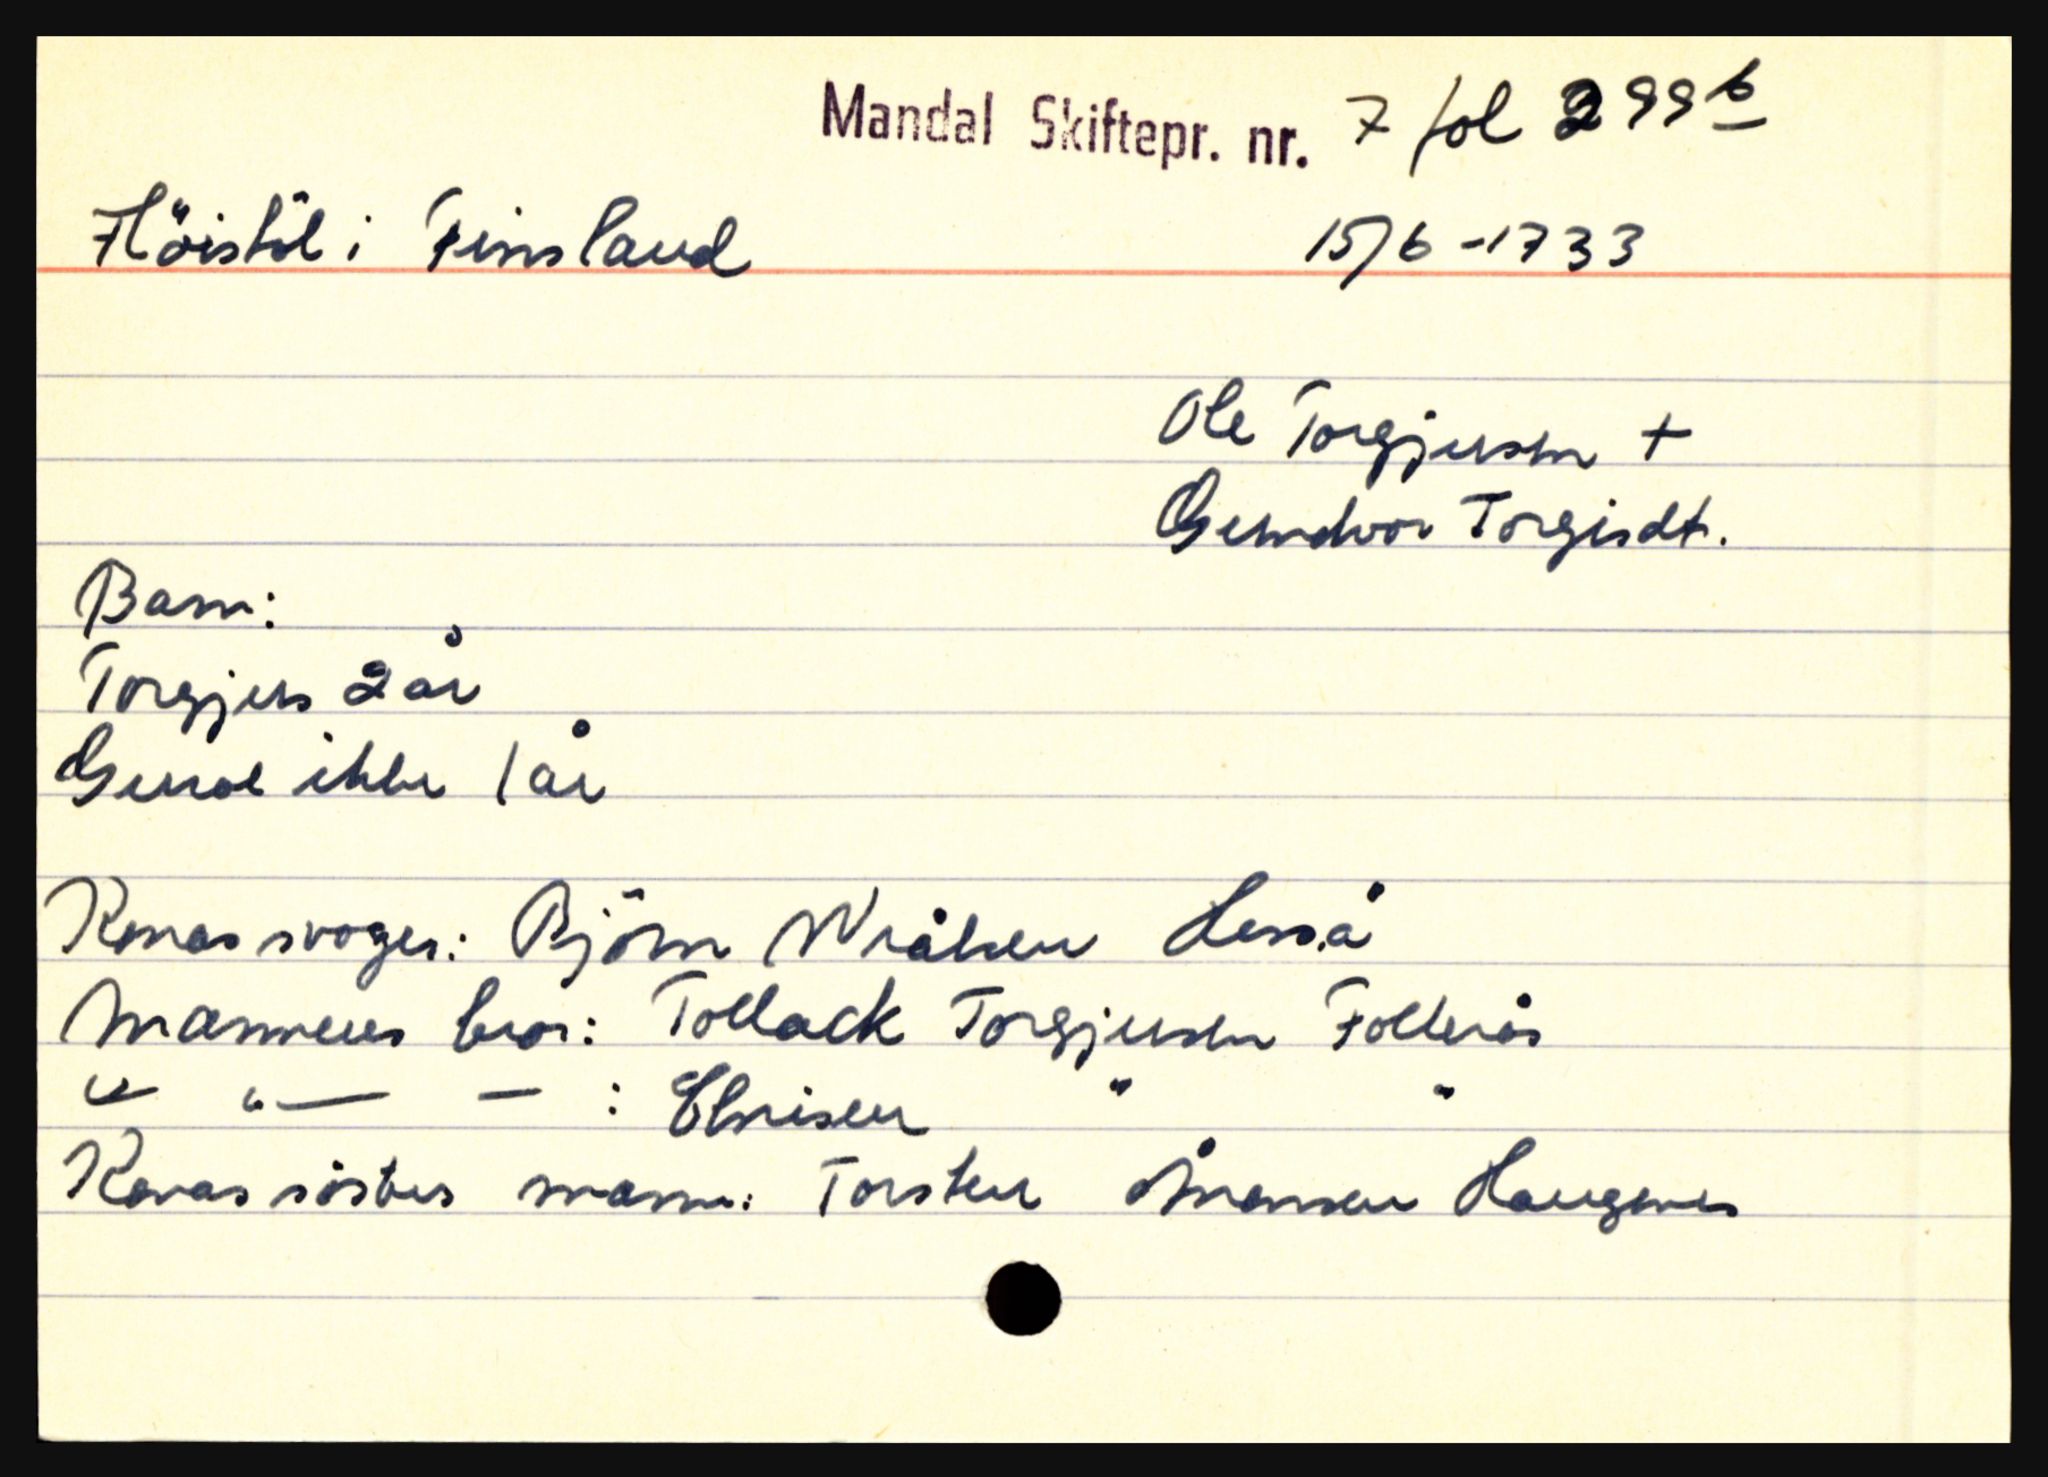 Mandal Skiftepr. nr. 7 fol 299 b
Höistöl i Finsland 15/6-1733
Ole Torgjersen +
Torgisdt.
Barn:
Torgjers 2 år
ikke 1 år
Konas svoger: Björn
Mannens bror: Tollack Torgjersen Follerås
" " — — : " "
Konas sösters mann: Torsten Åmonsen Haugenes